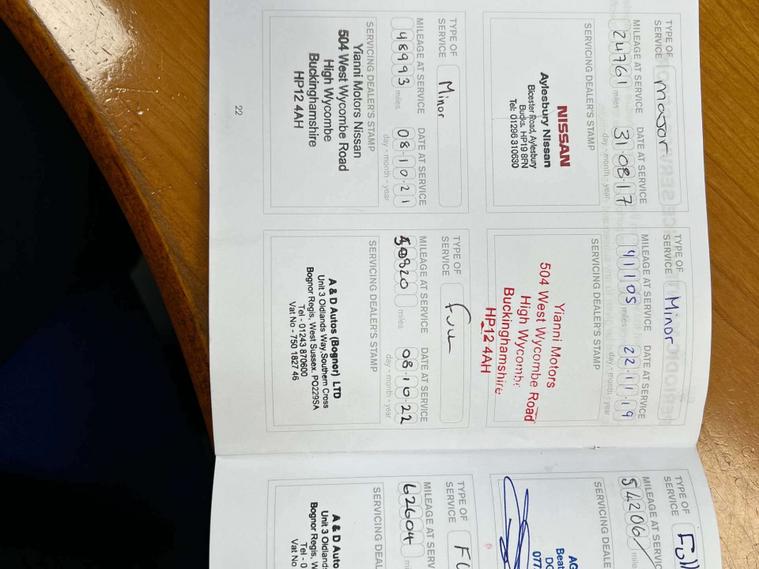 TYPE OF SERVICE Major
MILEAGE AT SERVICE DATE AT SERVICE
24761 miles 31 08 17
day - month - year
SERVICING DEALER'S STAMP
NISSAN
Aylesbury Nissan
Bicester Road, Aylesbury
Bucks. HP19 8FN
Tel: 01296 310630
TYPE OF SERVICE Minor
MILEAGE AT SERVICE DATE AT SERVICE
41105 miles 22 11 19
day - month - year
SERVICING DEALER'S STAMP
Yianni Motors
504 West Wycombe Road
High Wycombe
Buckinghamshire
HP12 4AH
TYPE OF SERVICE Full
MILEAGE AT SERVICE
54206
SERVICING DEALE
AG
Beat
077
TYPE OF SERVICE Minor
MILEAGE AT SERVICE DATE AT SERVICE
48993 miles 08 10 21
day - month - year
SERVICING DEALER'S STAMP
Yianni Motors Nissan
504 West Wycombe Road
High Wycombe
Buckinghamshire
HP12 4AH
22
TYPE OF SERVICE Full
MILEAGE AT SERVICE DATE AT SERVICE
miles 08 10 22
day - month - year
SERVICING DEALER'S STAMP
A & D Autos (Bognor) LTD
Unit 3 Oldlands Way,Southern Cross
Bognor Regis, West Sussex. PO229SA
Tel - 01243 870600
Vat No - 750 1827 46
TYPE OF SERVICE FU
MILEAGE AT SERV
62604
SERVICING DEAL
A & D Auto
Unit 3 Oldland
Bognor Regis, W
Tel - 0
Vat No